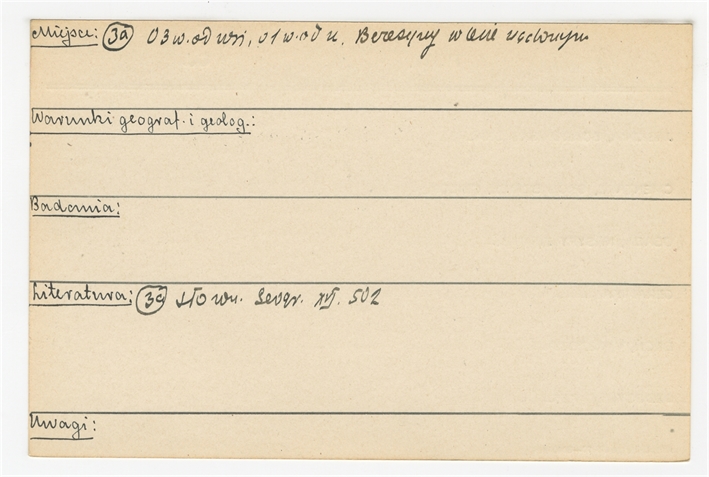 Miejsce: (3a) O 3 w. od wsi, o 1 w. od u. Berezyny w lesie
Warunki geograf. i geolog.:
Badania:
Literatura: (3a) Słown. Geogr. XV. 502
Uwagi: